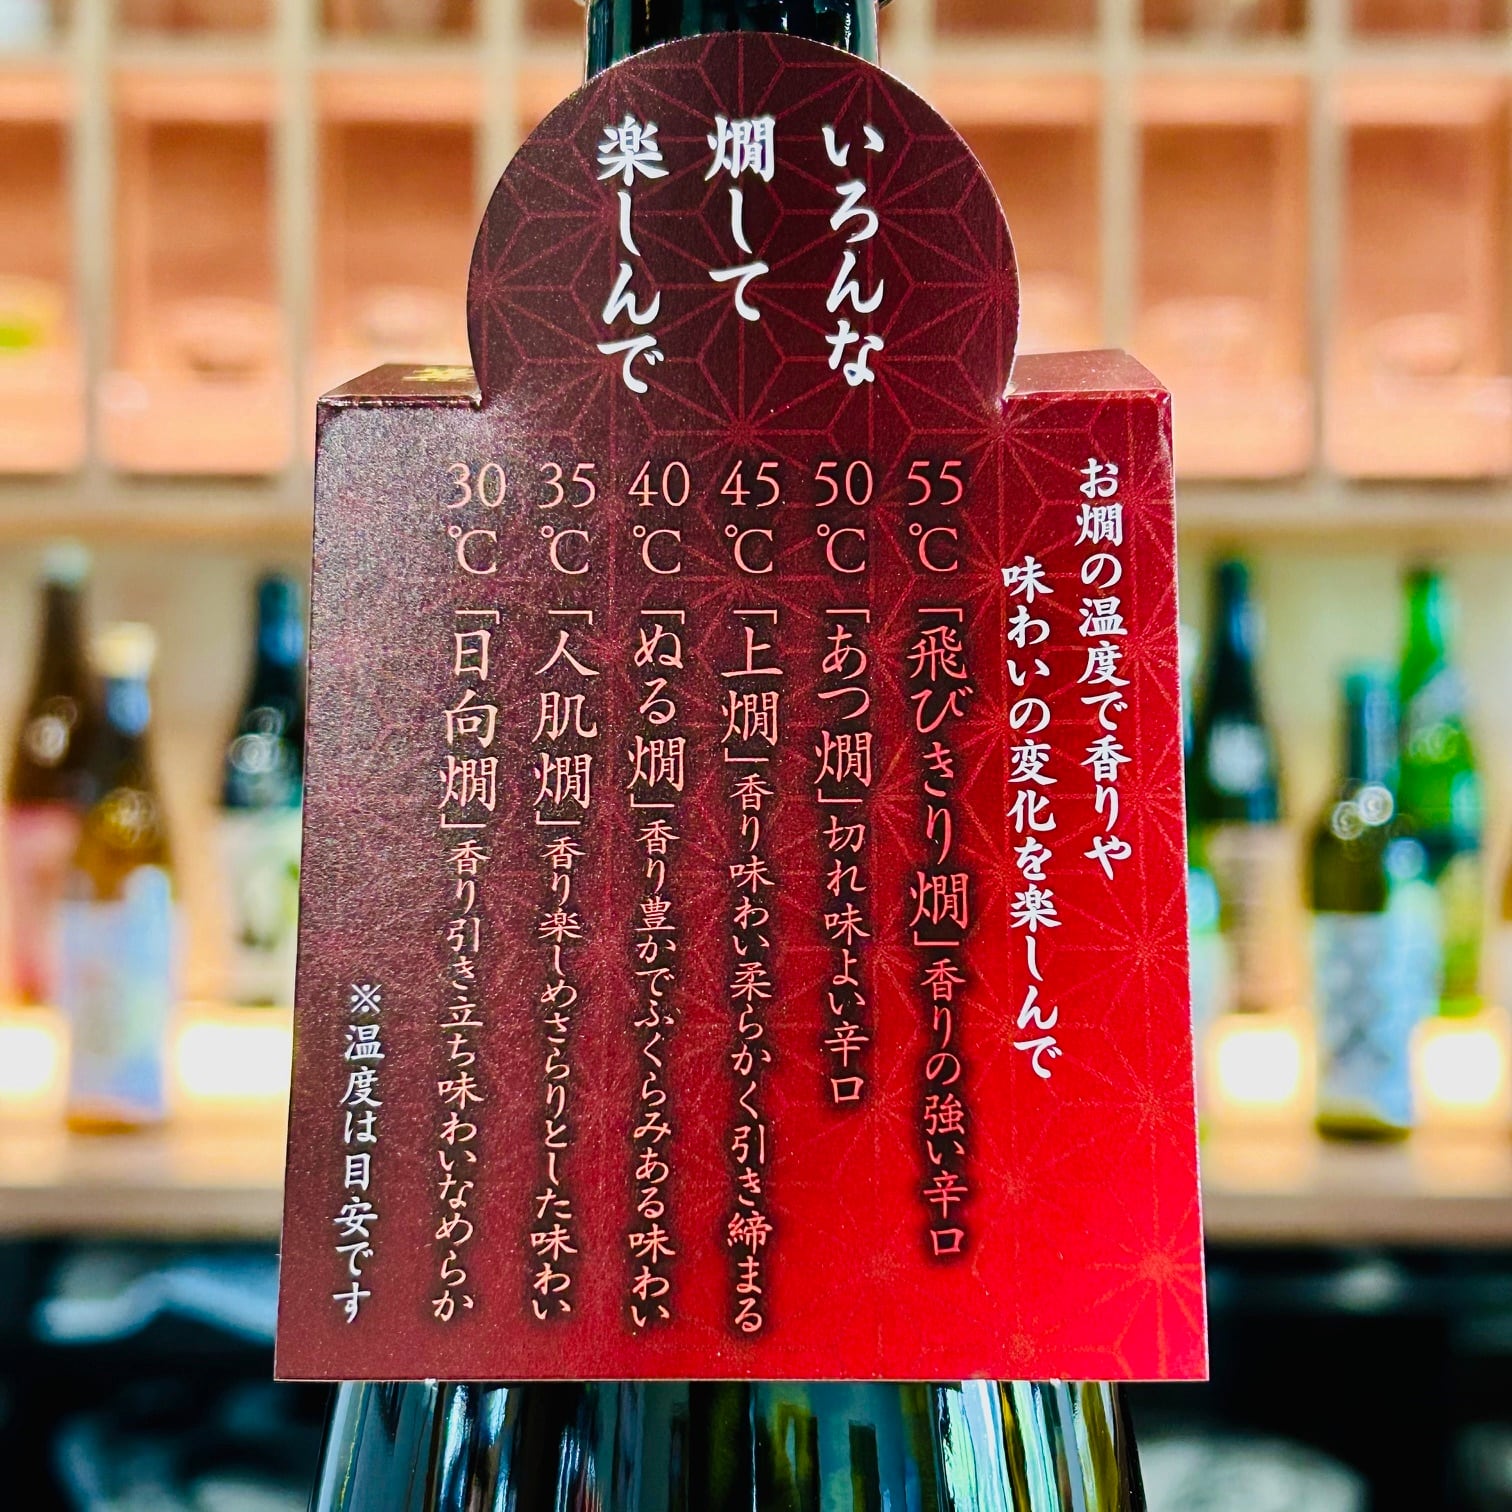 いろんな
燗して
楽しんで
お燗の温度で香りや
味わいの変化を楽しんで
55℃「飛びきり燗」香りの強い辛口
50℃「あつ燗」切れ味よい辛口
45℃「上燗」香り味わい柔らかく引き締まる
40℃「ぬる燗」香り豊かでふくらみある味わい
35℃「人肌燗」香り楽しめさらりとした味わい
30℃「日向燗」香り引き立ち味わいなめらか
※温度は目安です